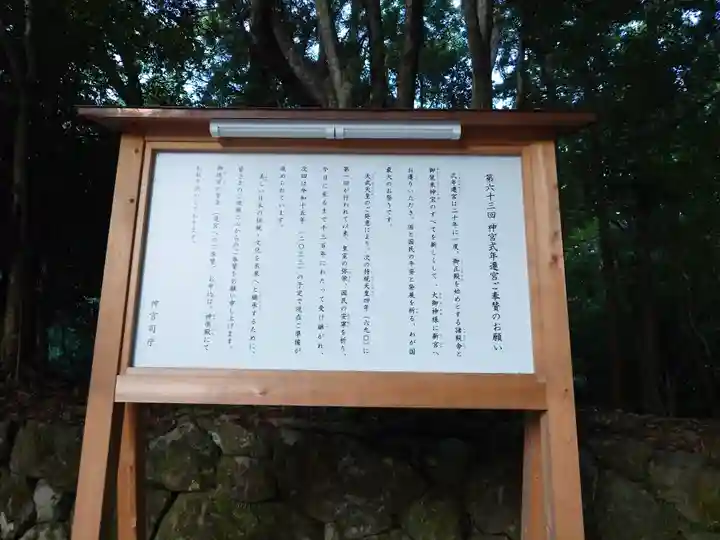 第六十三回 神宮式年遷宮ご奉賛のお願い
式年遷宮は二十年に一度、御正殿を始めとする諸殿舎と
御装束神宝のすべてを新しくして、大御神様に新宮へ
お遷りいただき、国と国民の平安と発展を祈る、わが国
最大のお祭りです。
天武天皇のご発意により、次の持統天皇四年(六九〇)に
第一回が行われて以来、皇室の弥栄、国民の安寧を祈り、
今日に至るまで千三百年にわたって受け継がれ、
次回は令和十五年(二〇三三)の予定で現在ご準備が
進められています。
美しい日本の伝統・文化を未来へと継承するために、
皆さまのご理解と心からのご奉賛をお願い申し上げます。
御造営資金(遷宮へのご奉賛)お申込は、神楽殿にて
神宮司庁